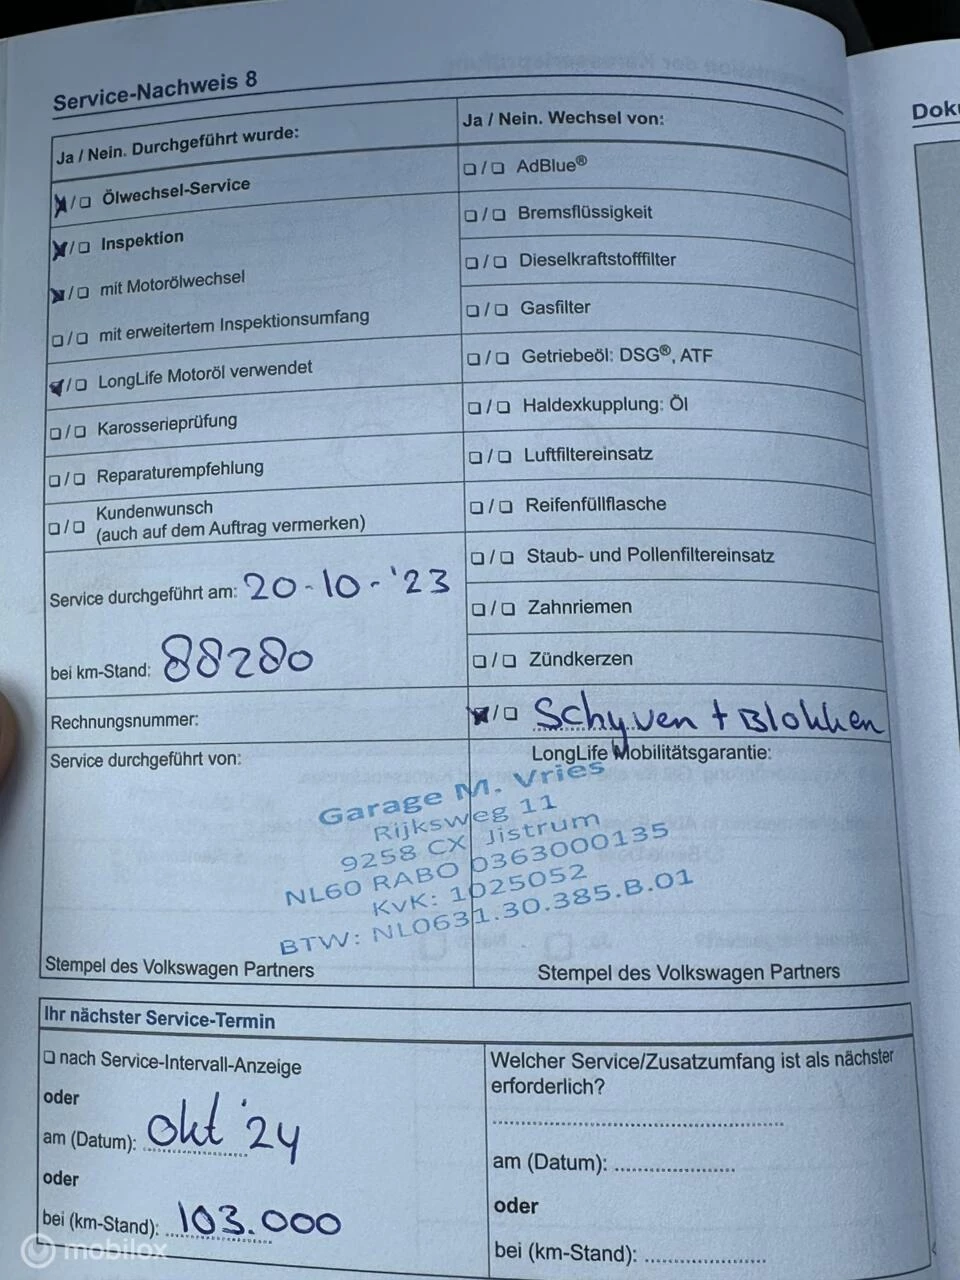 Service-Nachweis 8
Ja / Nein. Durchgeführt wurde:
☒/☐ Ölwechsel-Service
☒/☐ Inspektion
☒/☐ mit Motorölwechsel
☐/☐ mit erweitertem Inspektionsumfang
☒/☐ LongLife Motoröl verwendet
☐/☐ Karosserieprüfung
☐/☐ Reparaturempfehlung
☐/☐ Kundenwunsch
(auch auf dem Auftrag vermerken)
Service durchgeführt am: 20-10-'23
bei km-Stand: 88280
Rechnungsnummer:
Service durchgeführt von:
Ja / Nein. Wechsel von:
☐/☐ AdBlue®
☐/☐ Bremsflüssigkeit
☐/☐ Dieselkraftstofffilter
☐/☐ Gasfilter
☐/☐ Getriebeöl: DSG®, ATF
☐/☐ Haldexkupplung: Öl
☐/☐ Luftfiltereinsatz
☐/☐ Reifenfüllflasche
☐/☐ Staub- und Pollenfiltereinsatz
☐/☐ Zahnriemen
☐/☐ Zündkerzen
☒/☐ Schyven + Blokken
LongLife Mobilitätsgarantie:
Garage M. Vries
Rijksweg 11
9258 CX Jistrum
NL60 RABO 0363000135
KvK: 1025052
BTW: NL0631.30.385.B.01
Stempel des Volkswagen Partners
Stempel des Volkswagen Partners
Ihr nächster Service-Termin
☐ nach Service-Intervall-Anzeige
oder
am (Datum): okt '24
oder
bei (km-Stand): 103.000
Welcher Service/Zusatzumfang ist als nächster
erforderlich?
am (Datum):
oder
bei (km-Stand):
Doku
mobilox